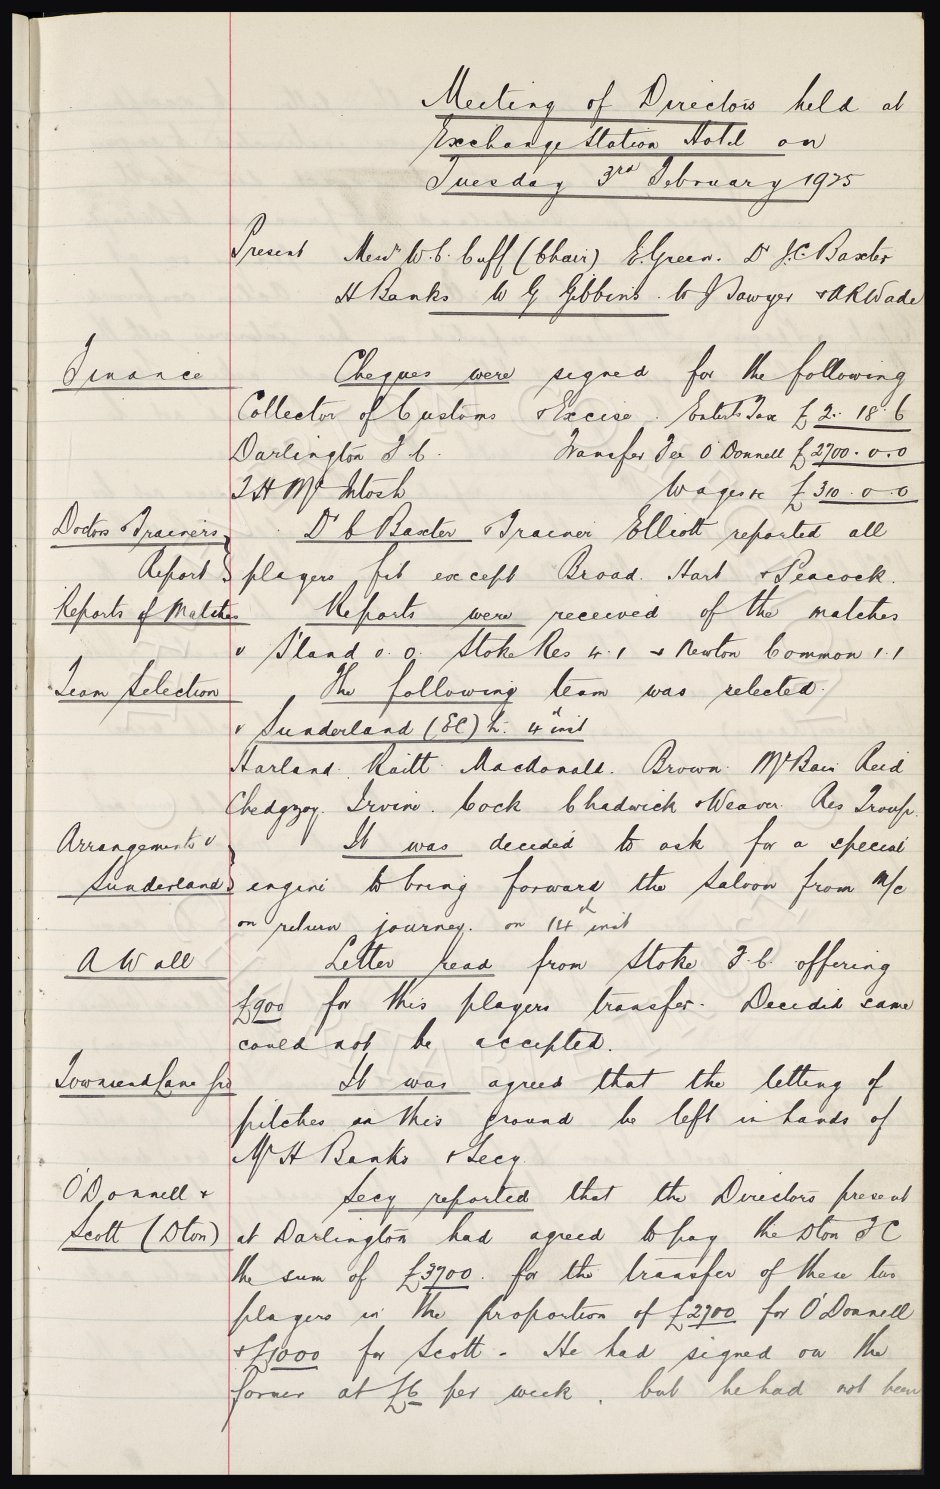 Meeting of Directors held at
Exchange Station Hotel on
Tuesday 3rd February 1925
Present Messrs W.C. Cuff (Chair) E. Green. Dr J.C. Baxter
H Banks W G Gibbins. W J Sawyer & A R Wade
Finance Cheques were signed for the following
Collector of Customs & Excise. Enterts Tax £2. 18. 6
Darlington F C. Transfer Fee O'Donnell £2700. 0. 0
T H McIntosh Wages &c £310. 0. 0
Doctors & Trainers Dr C Baxter & Trainer Elliott reported all
Report players fit except Broad. Hart & Peacock.
Reports of Matches Reports were received of the matches
v S'land 0. 0. Stoke Res 4. 1 & Newton Common 1. 1
Team Selection The following team was selected.
v Sunderland (EC) h. 4th inst
Harland. Raitt. Macdonald. Brown. McBain Reid
Chedgzoy. Irvine. Cock Chadwick & Weaver. Res Troup.
Arrangements v It was decided to ask for a special
Sunderland engine to bring forward the saloon from M/c
on return journey. on 14th inst
A Wall Letter read from Stoke F.C. offering
£900 for this players transfer. Decided same
could not be accepted.
Townsend Lane Grd It was agreed that the letting of
pitches on this ground be left in hands of
Mr H Banks & Secy.
O'Donnell & Secy reported that the Directors present
Scott (Dton) at Darlington had agreed to pay the Dton F C
the sum of £3700. for the transfer of these two
players in the proportion of £2700 for O'Donnell
& £1000 for Scott - He had signed on the
former at £6 per week, but he had not been